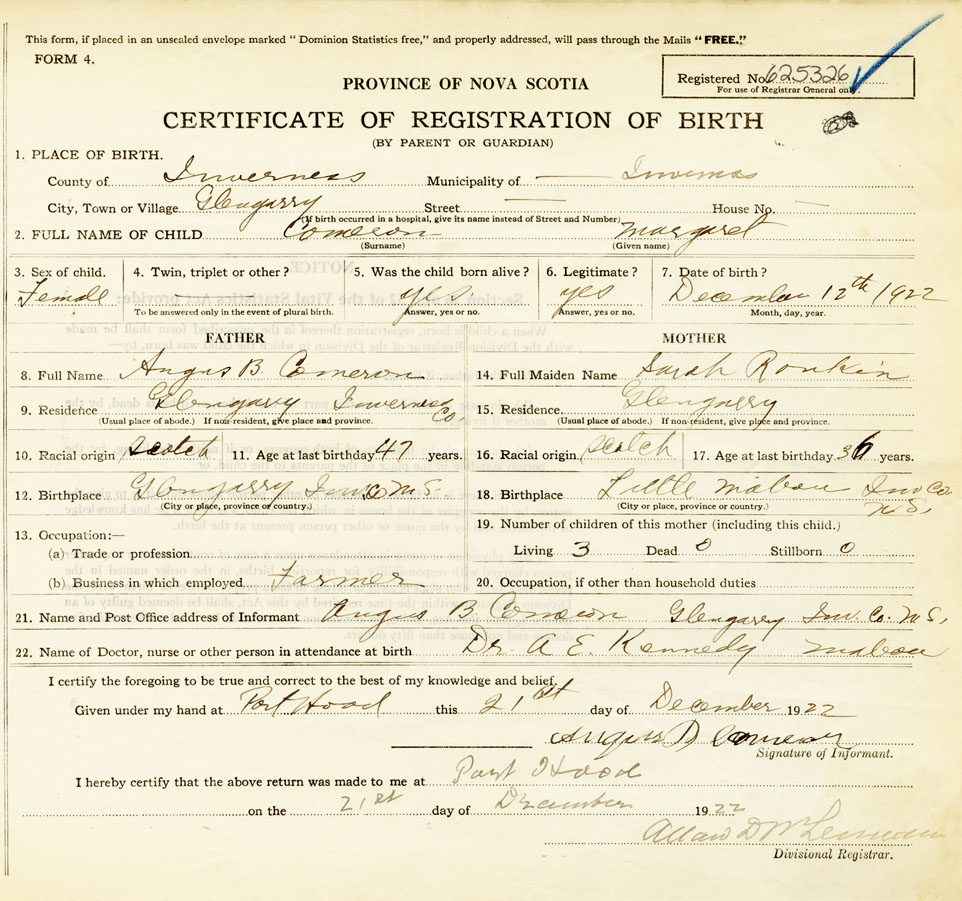 This form, if placed in an unsealed envelope marked “ Dominion Statistics free,” and properly addressed, will pass through the Mails “ FREE.”
FORM 4.
Registered No. 625326
For use of Registrar General only.
PROVINCE OF NOVA SCOTIA
CERTIFICATE OF REGISTRATION OF BIRTH
(BY PARENT OR GUARDIAN)
1. PLACE OF BIRTH.
County of Inverness Municipality of Inverness
City, Town or Village Glengarry Street House No.
(If birth occurred in a hospital, give its name instead of Street and Number)
2. FULL NAME OF CHILD Cameron Margaret
(Surname) (Given name)
3. Sex of child. 4. Twin, triplet or other? 5. Was the child born alive? 6. Legitimate? 7. Date of birth?
Female yes yes December 12th 1922
To be answered only in the event of plural birth. Answer, yes or no. Answer, yes or no. Month, day, year.
FATHER MOTHER
8. Full Name Angus B. Cameron 14. Full Maiden Name Sarah Rankin
9. Residence Glengarry Inverness Co. 15. Residence. Glengarry
(Usual place of abode.) If non-resident, give place and province. (Usual place of abode.) If non-resident, give place and province.
10. Racial origin Scotch 11. Age at last birthday 47 years. 16. Racial origin Scotch 17. Age at last birthday 36 years.
12. Birthplace Glengarry Inv. Co N.S. 18. Birthplace Little Mabou Inv Co N.S.
(City or place, province or country.) (City or place, province or country.)
13. Occupation:— 19. Number of children of this mother (including this child.)
(a) Trade or profession Living 3 Dead 0 Stillborn 0
(b) Business in which employed Farmer 20. Occupation, if other than household duties
21. Name and Post Office address of Informant Angus B. Cameron Glengarry Inv. Co. N.S.
22. Name of Doctor, nurse or other person in attendance at birth Dr. A. E. Kennedy Mabou
I certify the foregoing to be true and correct to the best of my knowledge and belief.
Given under my hand at Port Hood this 21st day of December 1922
Angus B Cameron
Signature of Informant.
I hereby certify that the above return was made to me at Port Hood
on the 21st day of December 1922
Allan D McLennan
Divisional Registrar.